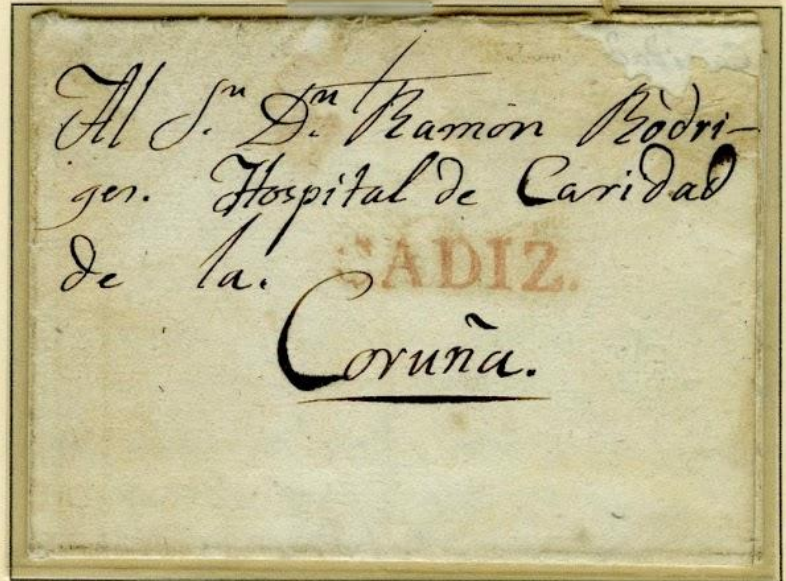 Al S.n D.n Ramón Ròdri-
gez. Hospital de Caridad
de la.
CADIZ.
Coruña.